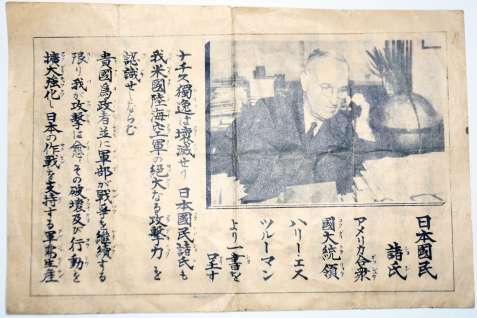 日本國民
諸氏
アメリカ合衆
國大統領
ハリー・エス
ツルーマン
より一書を
呈す
ナチス獨逸は壊滅せり 日本國民諸氏も
我米國陸海空軍の絶大なる攻撃力を
認識せしならむ
貴國為政者並に軍部が戦争を継續する
限り我が攻撃は愈々その破壊及び行動を
擴大強化し日本の作戦を支持する軍需生産